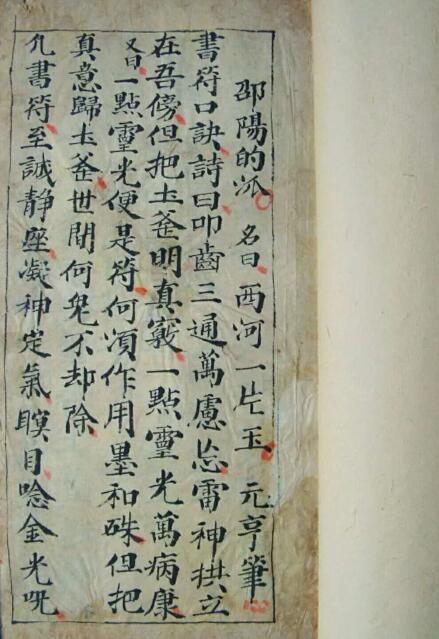 邵陽的派 名曰西河一片玉 元亨筆
書符口訣詩曰叩齒三通萬慮忘雷神拱立
在吾傍但把土釜明真竅一點靈光萬病康
又曰一點靈光便是符何須作用墨和硃但把
真意歸土釜世間何鬼不却除
凢書符至誠靜座凝神定氣瞑目唸金光呪